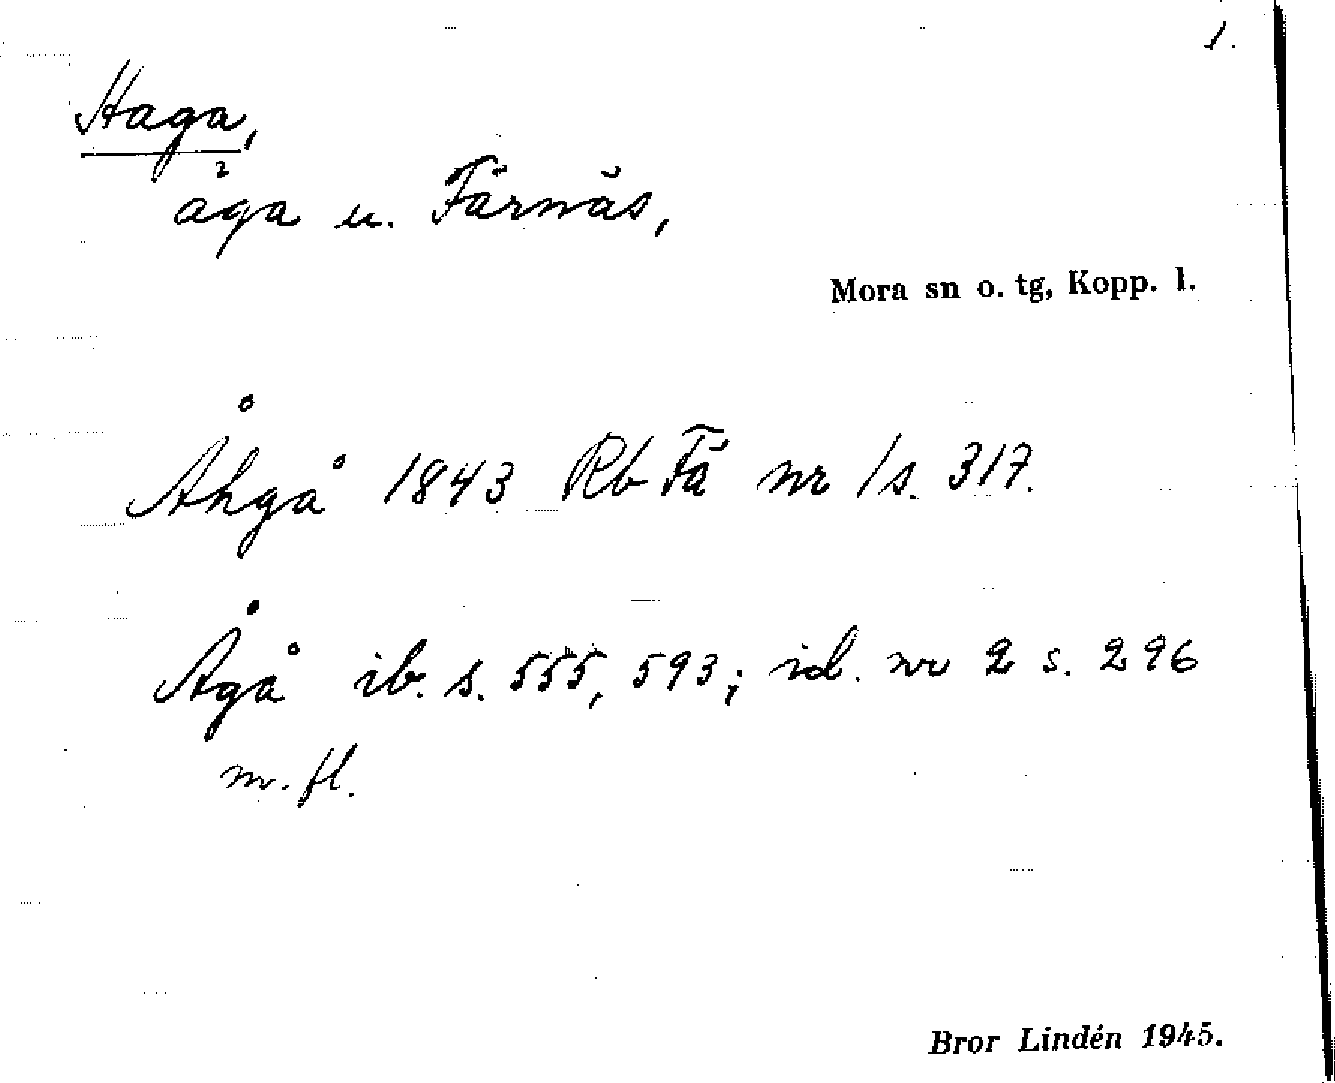 1.
Haga,
åga u. Färnäs,
Mora sn o. tg, Kopp. l.
Åhgå 1843 Rb Fä nr 1 s. 317.
Ågå ib. s. 555, 593; id. nr 2 s. 296
m. fl.
Bror Lindén 1945.